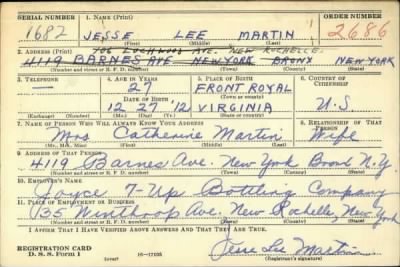 SERIAL NUMBER 1. NAME (Print) ORDER NUMBER
1687 JESSE LEE MARTIN 2686
(First) (Middle) (Last)
706 LOCKWOOD AVE. NEW ROCHELLE
2. ADDRESS (Print)
4119 BARNES AVE NEW YORK BRONX NEW YORK
(Number and street or R. F. D. number) (Town) (County) (State)
3. TELEPHONE 4. AGE IN YEARS 5. PLACE OF BIRTH 6. COUNTRY OF CITIZENSHIP
— 27 FRONT ROYAL
DATE OF BIRTH (Town or county)
12 27 '12 VIRGINIA U.S.
(Exchange) (Number) (Mo.) (Day) (Yr.) (State or country)
7. NAME OF PERSON WHO WILL ALWAYS KNOW YOUR ADDRESS 8. RELATIONSHIP OF THAT PERSON
Mrs Catherine Martin Wife
(Mr., Mrs., Miss) (First) (Middle) (Last)
9. ADDRESS OF THAT PERSON
4119 Barnes Ave. New York Bronx N.Y.
(Number and street or R. F. D. number) (Town) (County) (State)
10. EMPLOYER'S NAME
Joyce 7-Up Bottling Company
11. PLACE OF EMPLOYMENT OR BUSINESS
135 Winthrop Ave. New Rochelle, New York
(Number and street or R. F. D. number) (Town) (County) (State)
I AFFIRM THAT I HAVE VERIFIED ABOVE ANSWERS AND THAT THEY ARE TRUE.
REGISTRATION CARD
D. S. S. Form 1 16-17105 Jesse Lee Martin
(Registrant's signature)